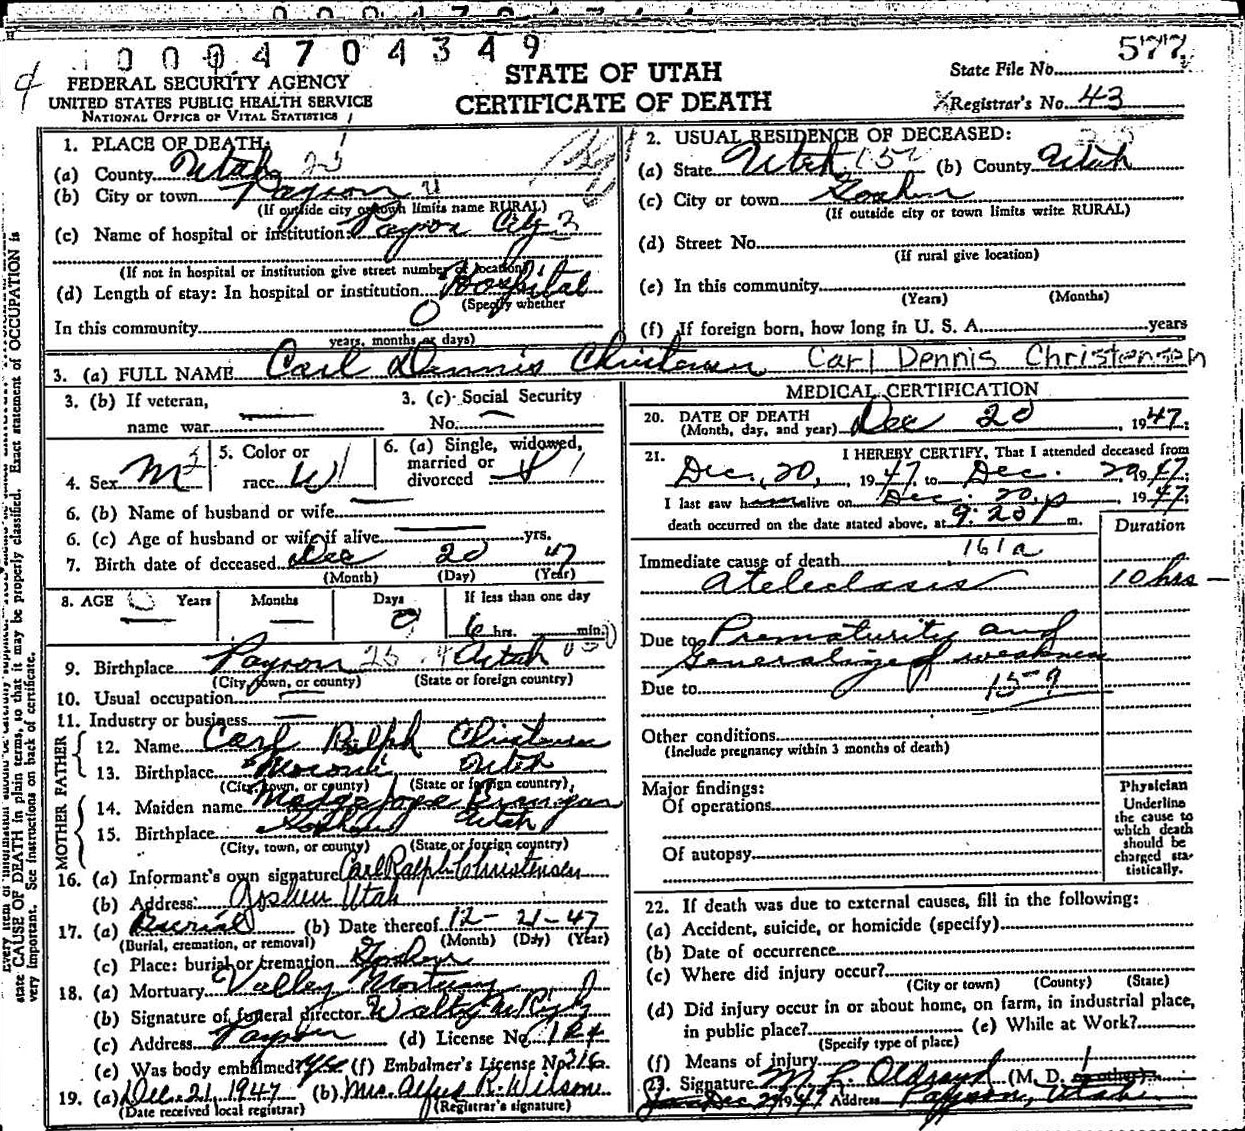 0004704349
577
FEDERAL SECURITY AGENCY
UNITED STATES PUBLIC HEALTH SERVICE
NATIONAL OFFICE OF VITAL STATISTICS
STATE OF UTAH
CERTIFICATE OF DEATH
State File No.
Registrar's No. 43
1. PLACE OF DEATH:
(a) County Utah 25
(b) City or town Payson
(If outside city or town limits name RURAL)
(c) Name of hospital or institution: Payson City
(If not in hospital or institution give street number or location)
Hospital
(d) Length of stay: In hospital or institution
(Specify whether
In this community 0
years, months or days)
2. USUAL RESIDENCE OF DECEASED:
(a) State Utah (b) County Utah
(c) City or town Goshen
(If outside city or town limits write RURAL)
(d) Street No.
(If rural give location)
(e) In this community
(Years) (Months)
(f) If foreign born, how long in U. S. A. years
3. (a) FULL NAME Carl Dennis Christensen Carl Dennis Christensen
3. (b) If veteran,
name war
3. (c) Social Security
No.
4. Sex M
5. Color or
race W
6. (a) Single, widowed,
married or
divorced
6. (b) Name of husband or wife
6. (c) Age of husband or wife if alive yrs.
7. Birth date of deceased Dec 20 47
(Month) (Day) (Year)
8. AGE Years Months Days If less than one day
0 6 hrs. min.
9. Birthplace Payson Utah
(City, town, or county) (State or foreign country)
10. Usual occupation
11. Industry or business
FATHER
12. Name Carl Ralph Christensen
13. Birthplace Moroni Utah
(City, town, or county) (State or foreign country)
MOTHER
14. Maiden name
15. Birthplace Goshen Utah
(City, town, or county) (State or foreign country)
16. (a) Informant's own signature Carl Ralph Christensen
(b) Address: Goshen Utah
17. (a) Burial (b) Date thereof 12-21-47
(Burial, cremation, or removal) (Month) (Day) (Year)
(c) Place: burial or cremation Goshen
18. (a) Mortuary Valley Mortuary
(b) Signature of funeral director
(c) Address Payson (d) License No. 124
(e) Was body embalmed? Yes (f) Embalmer's License No. 316
19. (a) Dec. 21, 1947 (b) Mrs. R. Wilson
(Date received local registrar) (Registrar's signature)
MEDICAL CERTIFICATION
20. DATE OF DEATH
(Month, day, and year) Dec 20, 1947
21. I HEREBY CERTIFY, That I attended deceased from
Dec. 20, 1947 to Dec. 20 1947
I last saw alive on Dec. 20, 1947
death occurred on the date stated above, at 9:20 p m.
Duration
161a
Immediate cause of death
Ateleclasis 10 hrs
Due to Prematurity and
Generalized weakness
Due to 159
Other conditions
(Include pregnancy within 3 months of death)
Major findings:
Of operations
Of autopsy
Physician
Underline
the cause to
which death
should be
charged sta-
tistically.
22. If death was due to external causes, fill in the following:
(a) Accident, suicide, or homicide (specify)
(b) Date of occurrence
(c) Where did injury occur?
(City or town) (County) (State)
(d) Did injury occur in or about home, on farm, in industrial place,
in public place? (e) While at Work?
(Specify type of place)
(f) Means of injury
23. Signature M. L. Oldroyd (M. D.
Dec 1947 Address Payson, Utah
Every item of information should be carefully supplied. Exact statement of OCCUPATION is
state CAUSE OF DEATH in plain terms, so that it may be properly classified.
very important. See instructions on back of certificate.